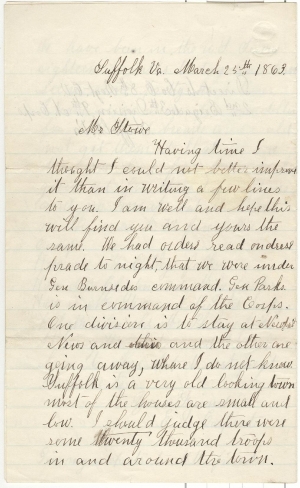 Suffolk Va. March 25th 1863
Mr Stowe
Having time I
thought I could not better improve
it than in writing a few lines
to you. I am well and hope this
will find you and yours the
same. We had orders read on dress
prade to night, that we were under
Gen Burnesides command. Gen Parks
is in command of the Corps.
One division is to stay at
News and and the other are
going away, where I do not know.
Suffolk is a very old looking town
most of the houses are small and
low. I should judge there were
some twenty thousand troops
in and around the town.